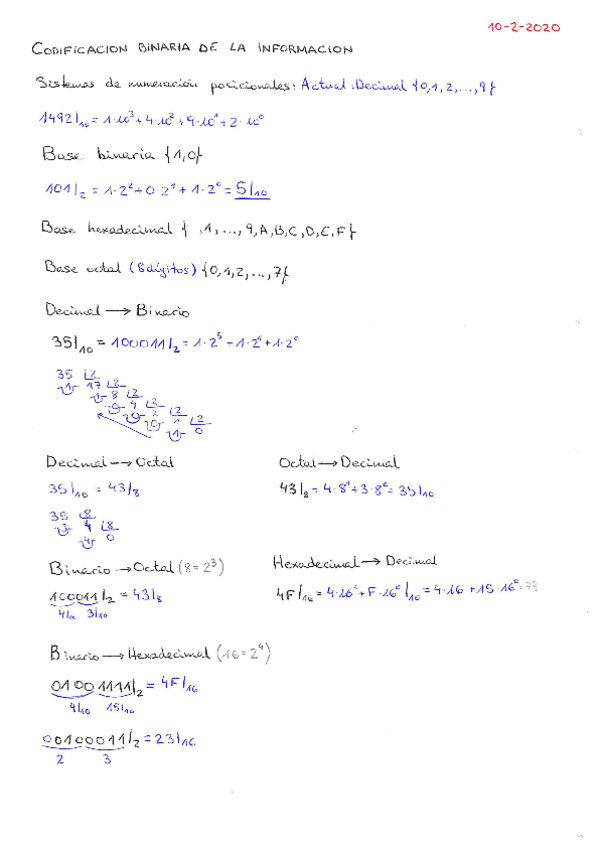 10-2-2020
CODIFICACION BINARIA DE LA INFORMACION
Sistemas de numeración posicionales: Actual: Decimal {0,1,2,...,9}
1492|₁₀ = 1·10³ + 4·10² + 9·10¹ + 2·10⁰
Base binaria {1,0}
101|₂ = 1·2² + 0·2¹ + 1·2⁰ = 5|₁₀
Base hexadecimal { ,1,...,9,A,B,C,D,E,F}
Base octal (8 dígitos) {0,1,2,...,7}
Decimal → Binario
35|₁₀ = 100011|₂ = 1·2⁵ + 1·2¹ + 1·2⁰
35 |2
1 17 |2
1 8 |2
0 4 |2
0 2 |2
0 1 |2
1 0
Decimal → Octal
35|₁₀ = 43|₈
35 |8
3 4 |8
4 0
Octal → Decimal
43|₈ = 4·8¹ + 3·8⁰ = 35|₁₀
Binario → Octal (8=2³)
100011|₂ = 43|₈
4|₁₀ 3|₁₀
Hexadecimal → Decimal
4F|₁₆ = 4·16¹ + F·16⁰|₁₀ = 4·16 + 15·16⁰ = 79
Binario → Hexadecimal (16=2⁴)
01001111|₂ = 4F|₁₆
4|₁₀ 15|₁₀
00100011|₂ = 23|₁₆
2 3